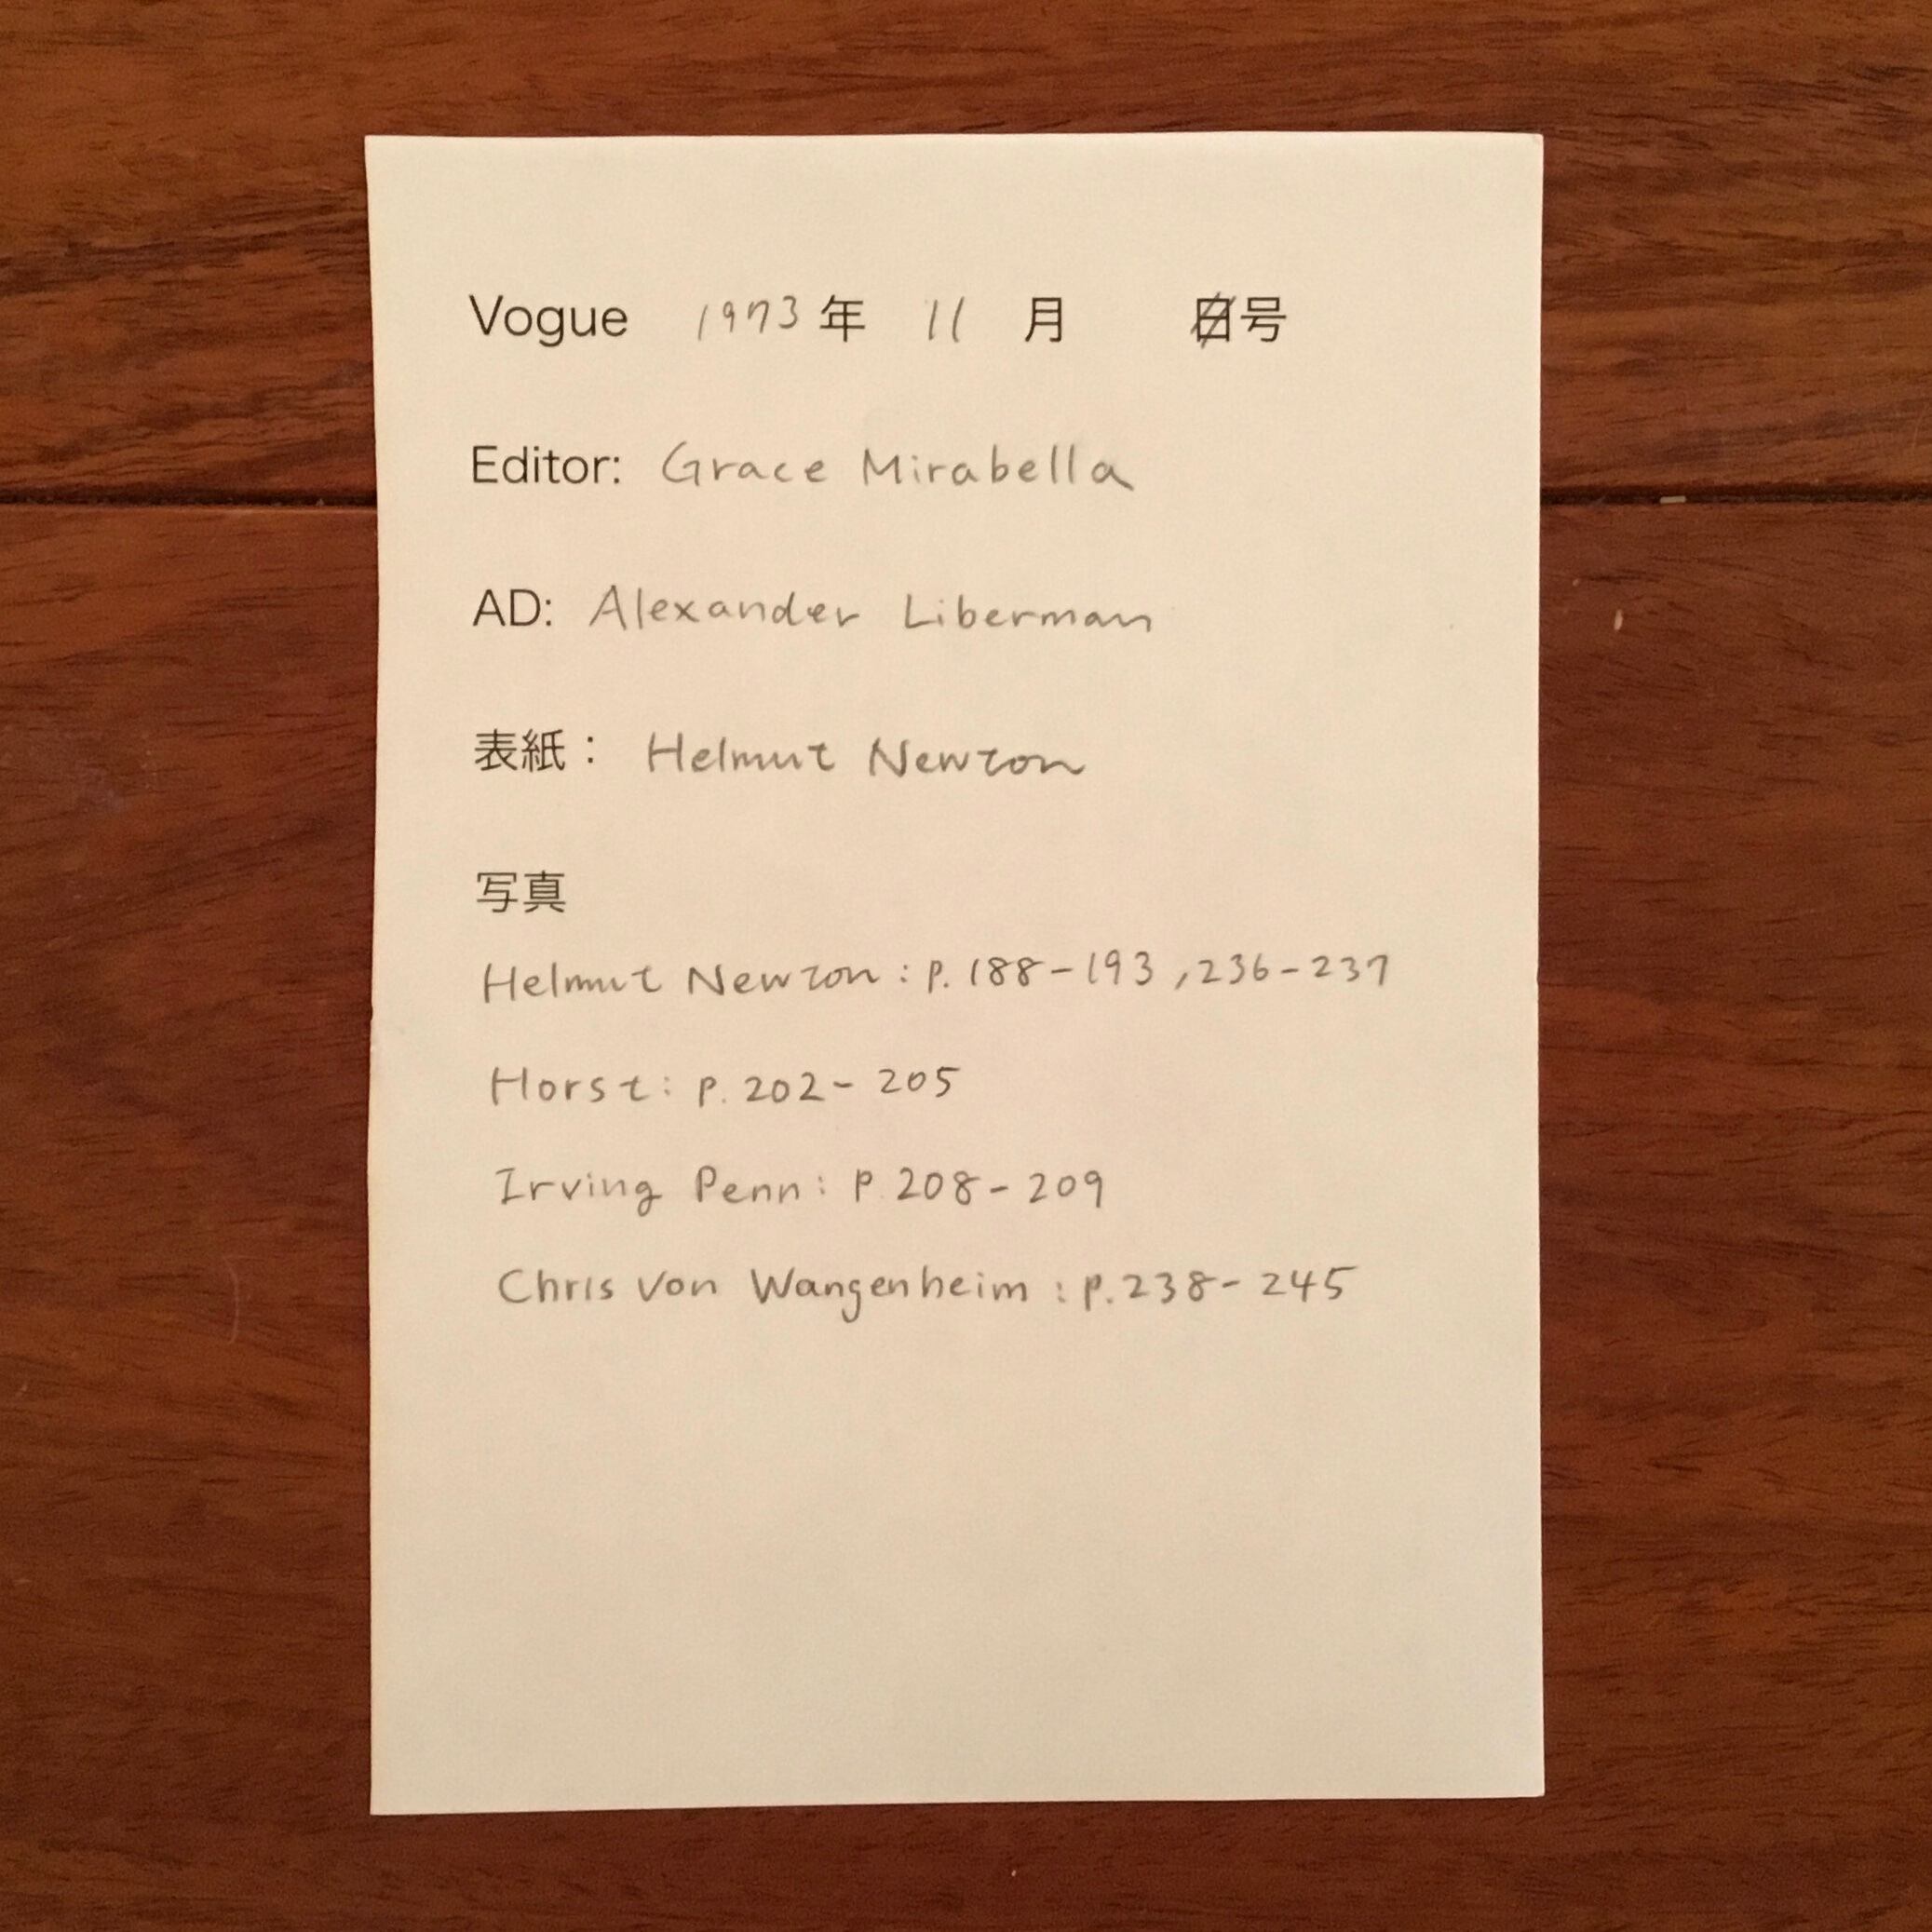 Vogue 1973年 11 月 日号
Editor: Grace Mirabella
AD: Alexander Liberman
表紙： Helmut Newton
写真
Helmut Newton : p. 188-193 , 236-237
Horst: p. 202- 205
Irving Penn: P. 208- 209
Chris von Wangenheim : p. 238- 245